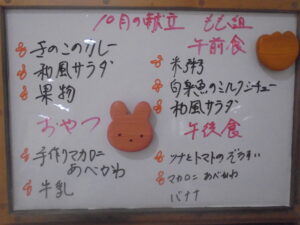 10月の献立 もも組
きのこのカレー
和風サラダ
果物
おやつ
手作りマカロニ
あべかわ
牛乳
午前食
米粥
白身魚のミルクシチュー
和風サラダ
午後食
ツナとトマトのぞうすい
マカロニ あべかわ
バナナ